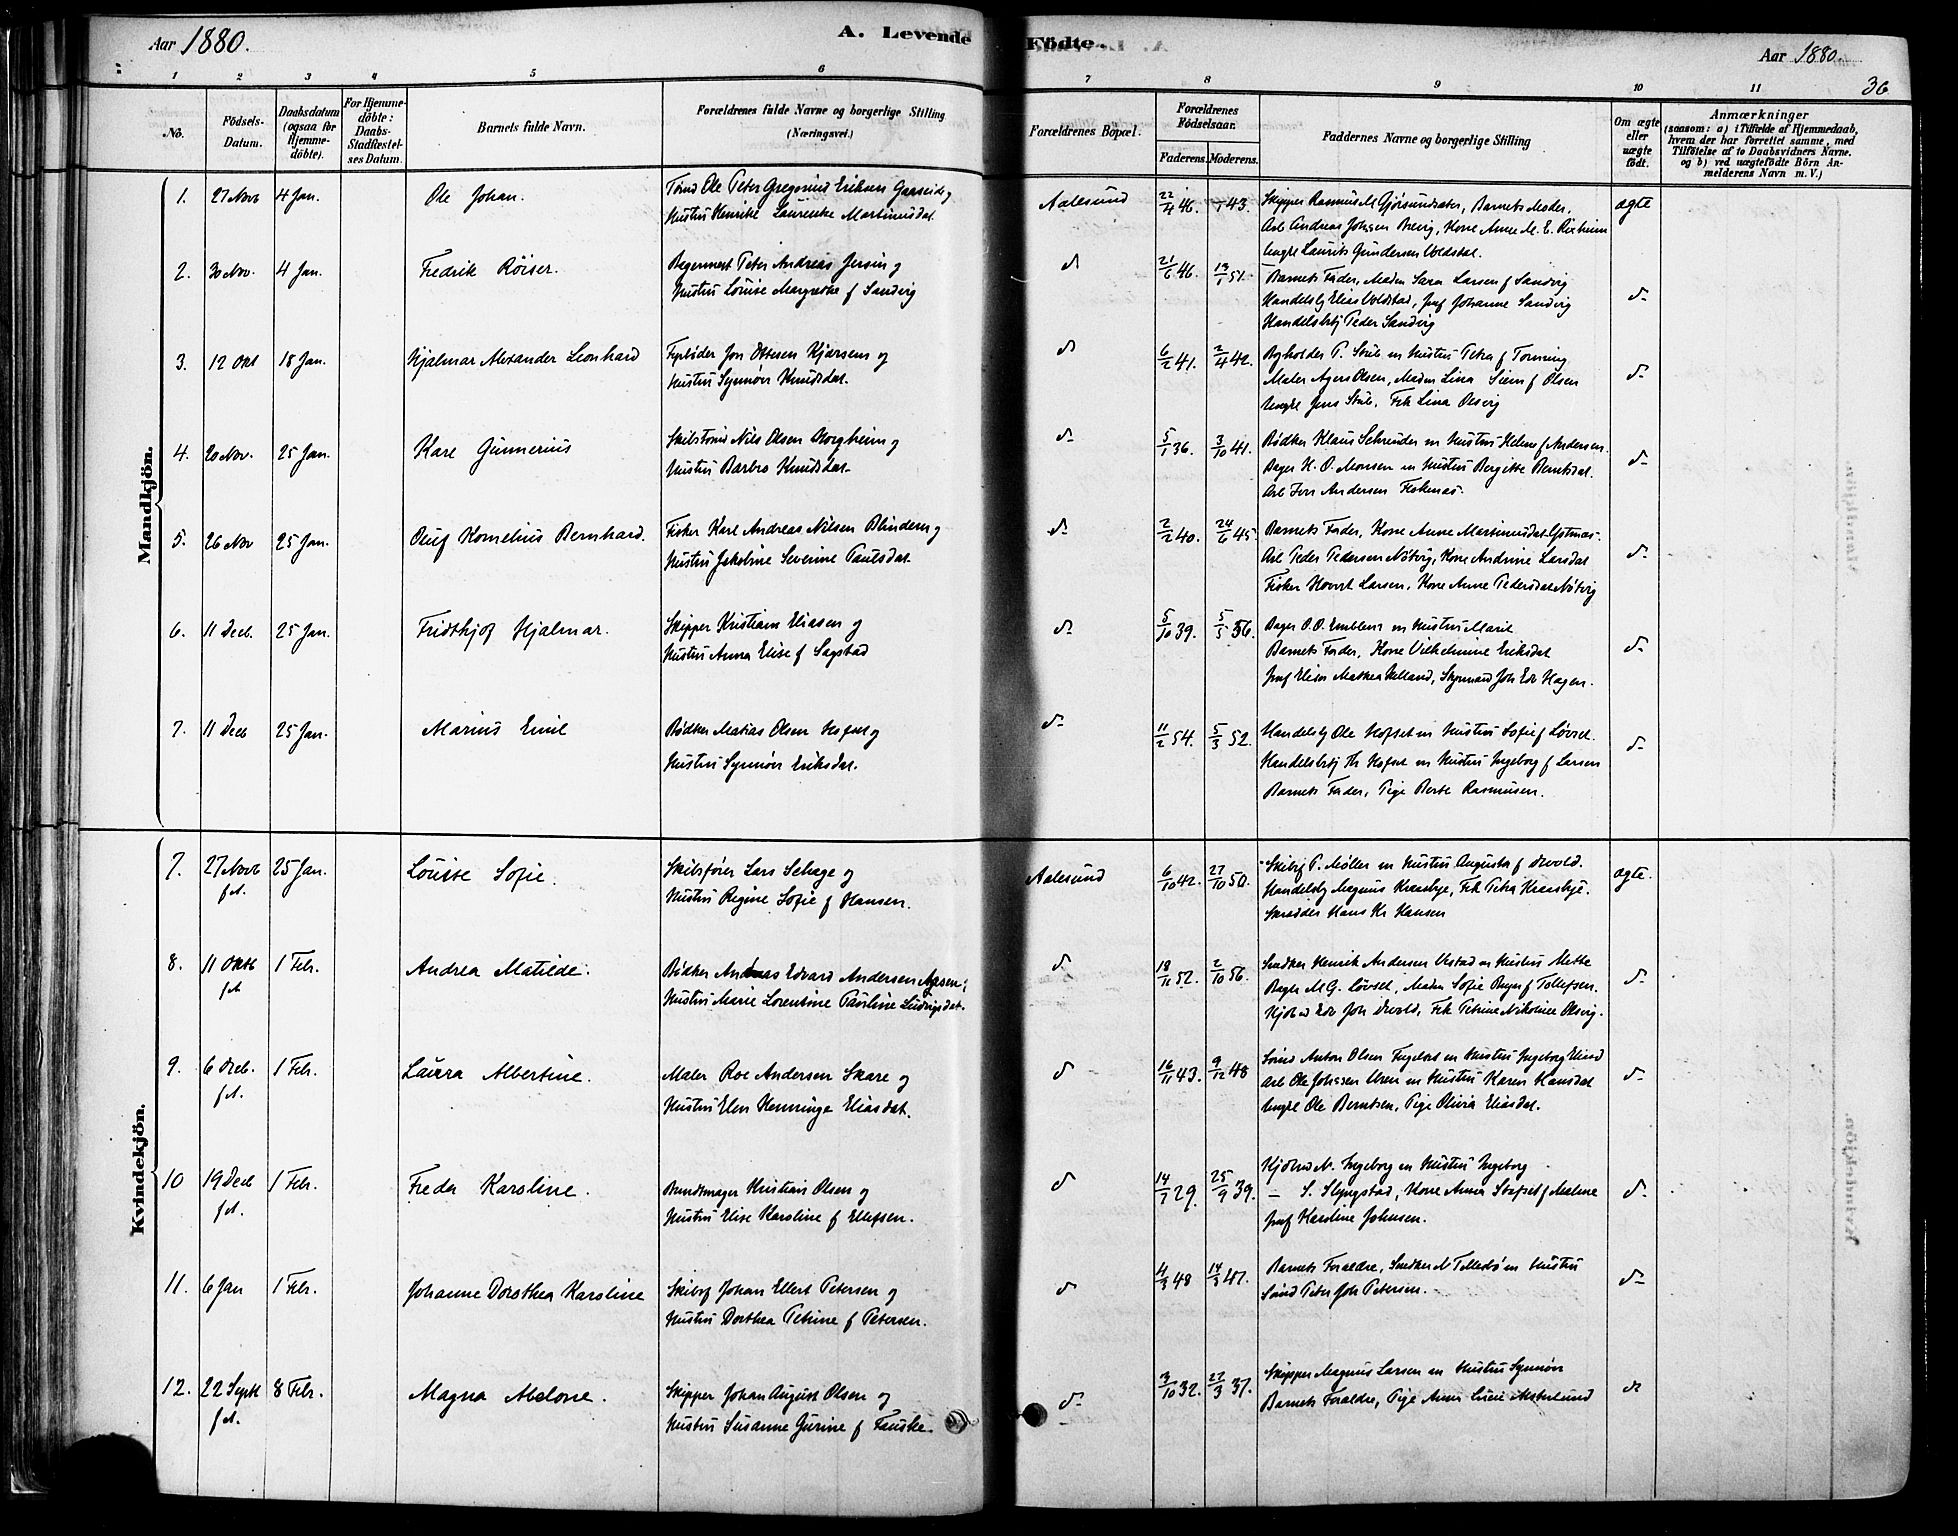 Aar 1880.
A. Levende Födte.
Aar 1880.
36
1 2 3 4 5 6 7 8 9 10 11
No.
Födsels-Datum.
Daabsdatum (ogsaa for Hjemme-döbte).
For Hjemme-döbte: Daabs-Stadfæstel-ses Datum.
Barnets fulde Navn.
Forældrenes fulde Navne og borgerlige Stilling (Næringsvei.)
Forældrenes Bopæl.
Forældrenes Födselsaar.
Faderens. Moderens.
Faddernes Navne og borgerlige Stilling
Om ægte eller uægte födt.
Anmærkninger
(saasom: a) i Tilfælde af Hjemmedaab, hvem der har forrettet samme, med Tilföielse af to Daabsvidners Navne. og b) ved uægtefödte Börn An-melderens Navn m. V.)
Mandkjön.
1. 27 Novb 4 Jan. Ole Johan. Tømd Ole Peter Eriksen
Hustru Henrikke Laurentse Martinusdat
Aalesund 22/4 46. 43. Skipper Rasmus M Barnets Moder,
Arb Andreas Johsen Brevig, Kone Anne M. E. Rixheim
Ungkl Laurits Gundersen Voldsdal
ægte
2. 30 Nov. 4 Jan. Fredrik Röiser. Bagermest Peter Andreas Jersin og
Hustru Louise Margrethe f Sandvig
d 21/6 46. 13/1 51. Barnets Fader, Madm Sara Larsen f Sandvig
Handelsbg Elias Voldstad, Jmf Johanne Sandvig
Handelsbtj Peder Sandvig
d-
3. 12 Okt 18 Jan. Hjalmar Alexander Leonhard Fyrböder Jon Ottesen og
Hustru Synnöve Knudsdat.
d 6/2 41. 2/4 42. P. Stub en Hustru Petra f Tonning
Maler Olsen, Madm Lina Siem f Olsen
Ungkl Jens Stub, Frk Lina Olsvig
d-
4. 20 Nov. 25 Jan. Kare Gunnerius Skibstömd Nils Olsen Horgheim og
Hustru Barbro Knudsdat
d- 5/1 36. 3/10 41. Bödker Klaus Schreuder en Hustru Helene f Andersen.
Bager H. O. Monsen en Hustru Bergitte Berntsdat.
Arb Iver Andersen
d-
5. 26 Nov 25 Jan. Oluf Kornelius Bernhard. Fisker Karl Andreas Nilsen Blindem og
Hustru Jakobine Severine Paulsdat.
d- 2/2 40. 24/6 45 Barnets Fader, Kone Anne Martinusdat
Arb Peder Pedersen Nötvig, Kone Andrine Larsdat
Fisker Larsen, Kone Anne Pedersdat Nötvig
d-
6. 11 Decb. 25 Jan. Fridthjof Hjalmar. Skipper Kristian Eliasen og
Hustru Anna Elise f Sagstad
d- 5/10 39. 5/5 56. Bager O. O. Emblem en Hustru Marie
Barnets Fader, Kone Vilhelmine Eriksdat
Jmf Elise Mathea Joh Edv Hagen.
d-
7. 11 Decb 25 Jan. Marius Emil Bödker Matias Olsen Hofset og
Hustru Synnöve Eriksdat.
d- 11/2 54. 5/3 52. Handelsbg Ole Hofset en Hustru Sofie f Lövset.
Handelsbtj Hofset en Hustru Ingeborg f Larsen
Barnets Fader, Pige Berte Rasmusen.
d-
Kvindekjön.
7. 27 Novb f.A. 25 Jan. Louise Sofie. Skibsförer Lars Selvage og
Hustru Regine Sofie f Hansen.
Aalesund 6/10 42. 27/10 50. Skibsf P. Möller en Hustru Augusta f Devold.
Handelsbg Magnus Kransbye, Frk Petra Kransbye.
Skrædder Hans Kr Hansen
ægte.
8. 11 Oktb f.A 1 Febr. Andrea Matilde. Bödker Andreas Edvard Andersen Aasen
Hustru Marie Lorentine Pauline Ludvigsdat.
d 18/11 52. 2/10 56. Snedker Henrik Andersen en Hustru Mette
Bager M G. Lövset, Madm Sofie f Tollefsen.
Edv Joh Devold, Frk Petrine Nikoline Olsvig.
d-
9. 6 Decb. f.A. 1 Febr. Laura Albertine. Maler Roe Andersen Skare og
Hustru Elen Henninge Eliasdat.
d 16/11 43. 9/12 48 Anton Olsen en Hustru Ingeborg
Arb Ole Johnsen en Hustru Karen Hansdat
Ungkl Ole Berntsen, Pige Olivia Eliasdat.
d-
10 19 Decb f.A. 1 Febr. Freda Karoline. Buntmager Kristian Olsen og
Hustru Elise Karoline f Ellefsen.
d 14/1 29. 25/9 39. N. Ingeborg en Hustru Ingeborg
— S. Slyngstad, Kone Anna f Malme
Jmf Karoline Johnsen.
d-
11. 6 Jan 1 Febr. Johanne Dorothea Karoline Skibsf Johan Ellert Petersen og
Hustru Dorthea Petrine f Petersen.
d 4/3 48 14/3 47. Barnets Forældre, Snedker N en Hustru
Peter Joh Petersen.
d-
12. 22 Septb f.A. 8 Febr. Magna Skipper Johan August Olsen og
Hustru Susanne Gurine f Fauske.
d- 3/10 32. 27/3 37. Skipper Magnus Larsen en Hustru Synnöve
Barnets Forældre, Pige Anna
d-